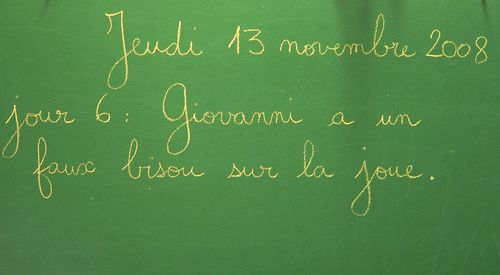 Jeudi 13 novembre 2008
jour 6 : Giovanni a un
faux bisou sur la joue.